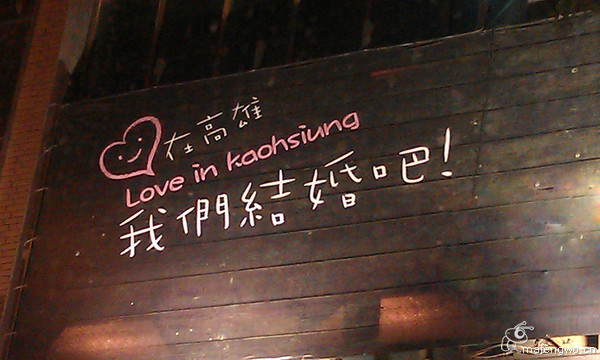 在高雄
Love in kaohsiung
我們結婚吧!
mafengwo.cn